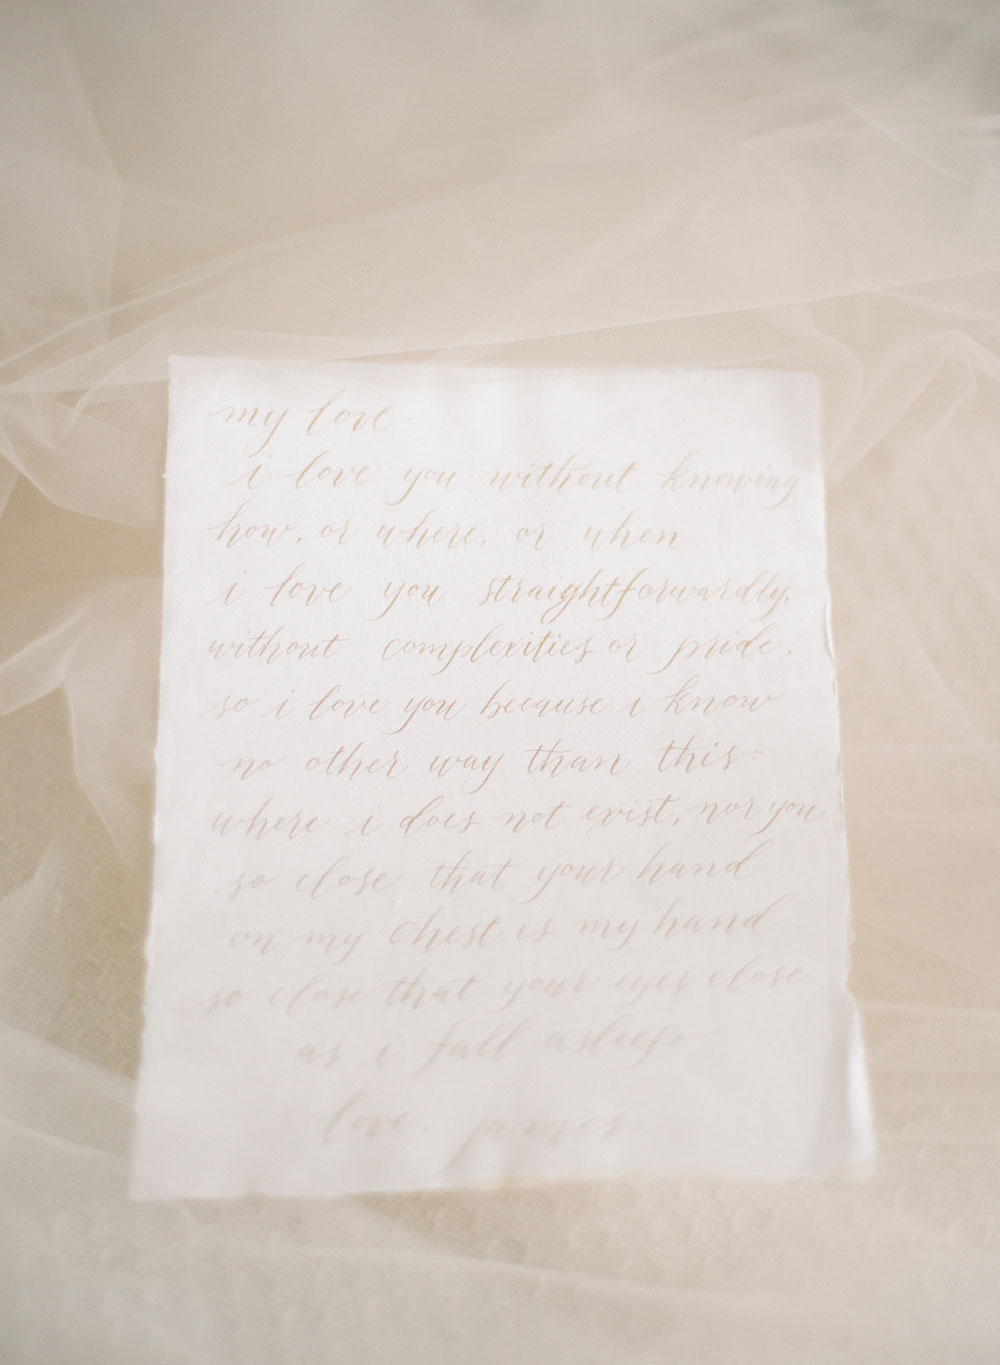 my love -
i love you without knowing
how, or where, or when
i love you straightforwardly,
without complexities or pride.
so i love you because i know
no other way than this:
where i does not exist, nor you
so close that your hand
on my chest is my hand
so close that your eyes close
as i fall asleep.
love, james